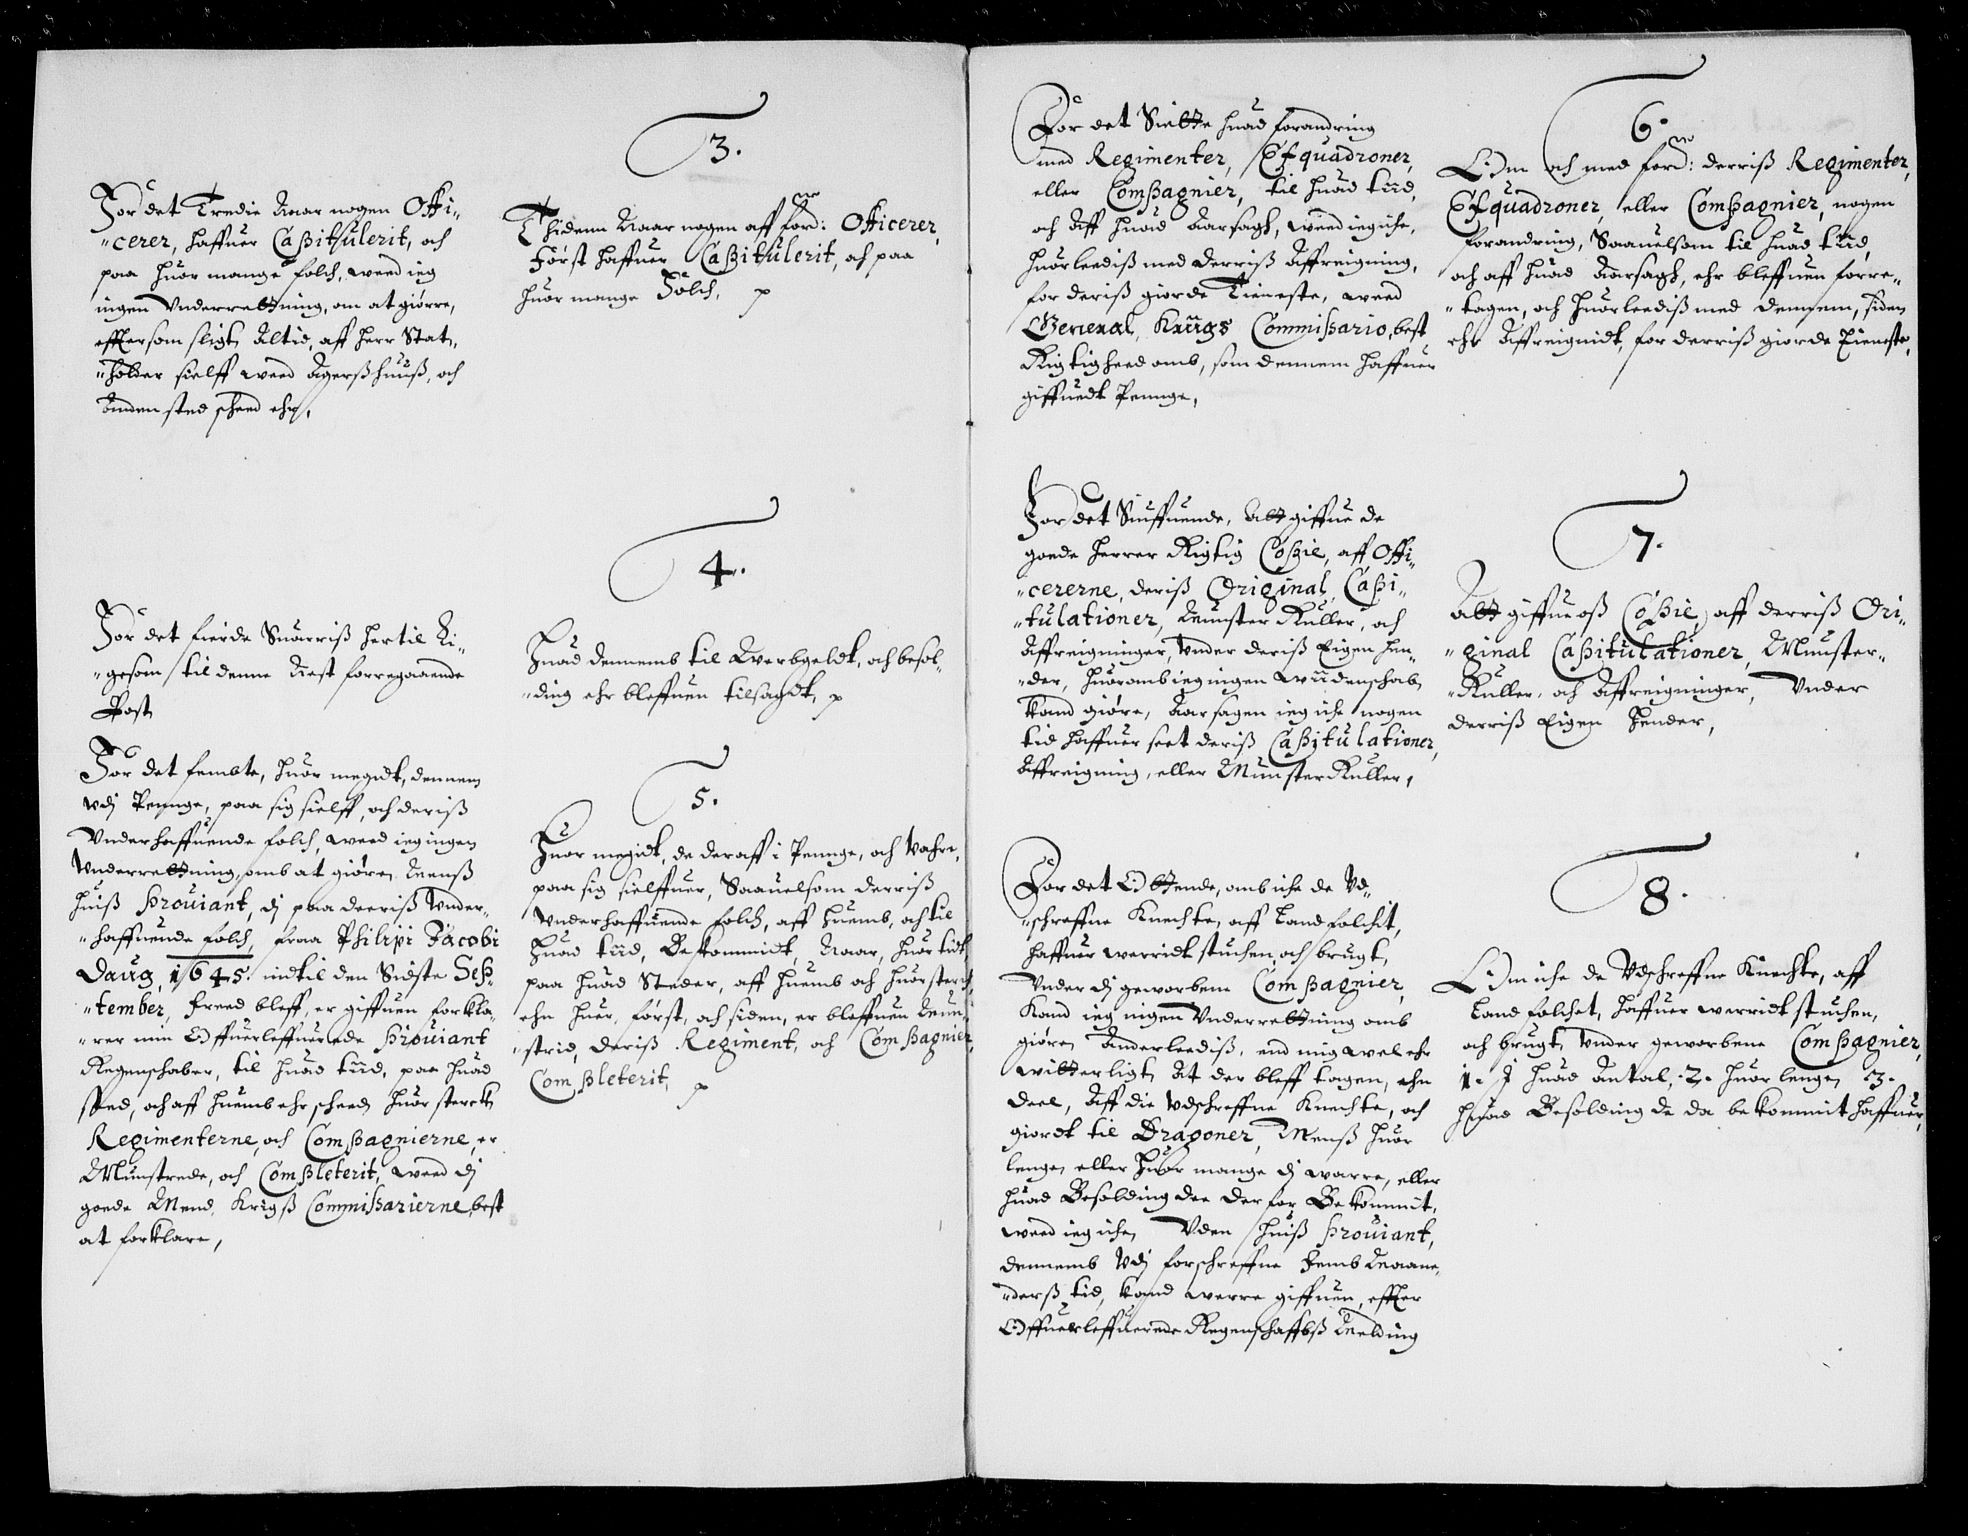 For det Tredie Naar nogen Offi¬
"cerer, haffuer Capitulerit, och
paa huor mange folch, weed ieg
ingen Vnderrettning, om at giørre,
effter som sligt Altid, aff Herr Stat¬
"holder sielff weed Agerßhuuß, och
Anden sted scheed ehr,
3.
Thidenn Naar nogen aff ford:ne Officerer,
Først haffuer Capitulerit, och paa
huor mange Folch, p
For det fierde Suarriß hertil Li¬
"gesom til denne Nest forregaaende
Post
4.
Huad dennemb til Werbgeldt, och besol¬
"ding ehr bleffuen tilsagdt, p
For det fembte, huor megidt, dennem
vdj Penge, paa sig sielff, och deriß
Vnderhaffuende folch, weed ieg ingen
Vnderrettning, omb at giøre, Menß
huiß Prouiant, dj paa deeriß Vnder¬
"haffuende folch, fraa Philipi Jacobi
Daug, 1645. indtil den Sidste Sep¬
"tember, Freed bleff, er giffuen forkla¬
"rer min Offuerleffuerede Prouiant
Regenschaber, til huad tiid, paa huad
sted, och aff huemb ehr scheed, huor sterck
Regimenterne, och Compagnierne, er
Munstrede, och Completerit, weed dj
goede Mend, Krigß Commissarierne, best
at forklare,
5.
Huor megidt, de deraff i Penge, och Vahre,
paa sig sielffuer, Saauelsom derriß
Vnderhaffuende folch, aff huemb, och til
huad tiid, Bekommidt, Naar, huor tidt
paa huad Steder, aff huemb och huor sterch,
ehn huer, først, och siden, er bleffuen Mun¬
"strid, deriß Regiment, och Compagnier,
Completerit, p
For det Siette huad forandring
med Regimenter, Esquadroner,
eller Compagnier, til huad tiid,
och Aff huad Aarsagh, weed ieg iche,
huorleediß med derriß Affreigning,
for deriß giorde Tieneste, weed
General, Kriigs Commissario, best
Rigtigheed omb, som dennem haffuer
giffuedt Penge,
6.
Om och med ford:ne derriß Regimenter,
Esquadroner, eller Compagnier, nogen
forandring, Saauelsom til huad tiid,
och aff huad Aarsagh, ehr bleffuen forre¬
"tagen, och huorleediß med dennem, siden
ehr Affreignidt, for derriß giorde Tieneste,
For det Siuffuende, Att giffue de
goede Herrer Rigtig Copie, aff Offi¬
"cererne, deriß Original, Capi¬
"tulationer, Munster Ruller, och
Affreigninger, Vnder deriß Eigen Hen¬
"der, huoromb ieg ingen Wiidenschab
kand giøre, Aarsagen ieg iche nogen
tid haffuer seet deriß Capitulationer,
Affreigning, eller Munster Ruller,
7.
Att giffue oß Copie, aff derriß Ori¬
"ginal Capitulationer, Munster¬
"Ruller, och Affreigninger, Vnder
derriß Eigen Hender,
For det Ottende, omb iche de Vd¬
"schreffne Knechte, aff Landfolchit,
haffuer werridt stuchen, och brugt,
Vnder dj geworbene Compagnier,
Kand ieg ingen Vnderrettning omb
giøre, Anderleediß, end mig wel ehr
witterligt, At der bleff tagen, ehn
deel, Aff die Vdschreffne Knechte, och
giordt til Dragoner, Menß huor
lenge, eller huor mange dj warre, eller
huad Besolding dee derfor Bekommit,
weed ieg iche, Vden huiß Prouiant,
dennemb Vdj forschreffne Femb Maane¬
"derß tid, kand werre giffuen, effter
Offuerleffuerede Regenschaffbß Melding
8.
Om iche de Vdschreffne Knechte, aff
Landfolchet, haffuer werridt stuchen,
och brugt, Vnder geworbene Compagnier,
1. I huad Antal, .2. huor lenge, .3.
huad Besolding de da bekommit haffuer,